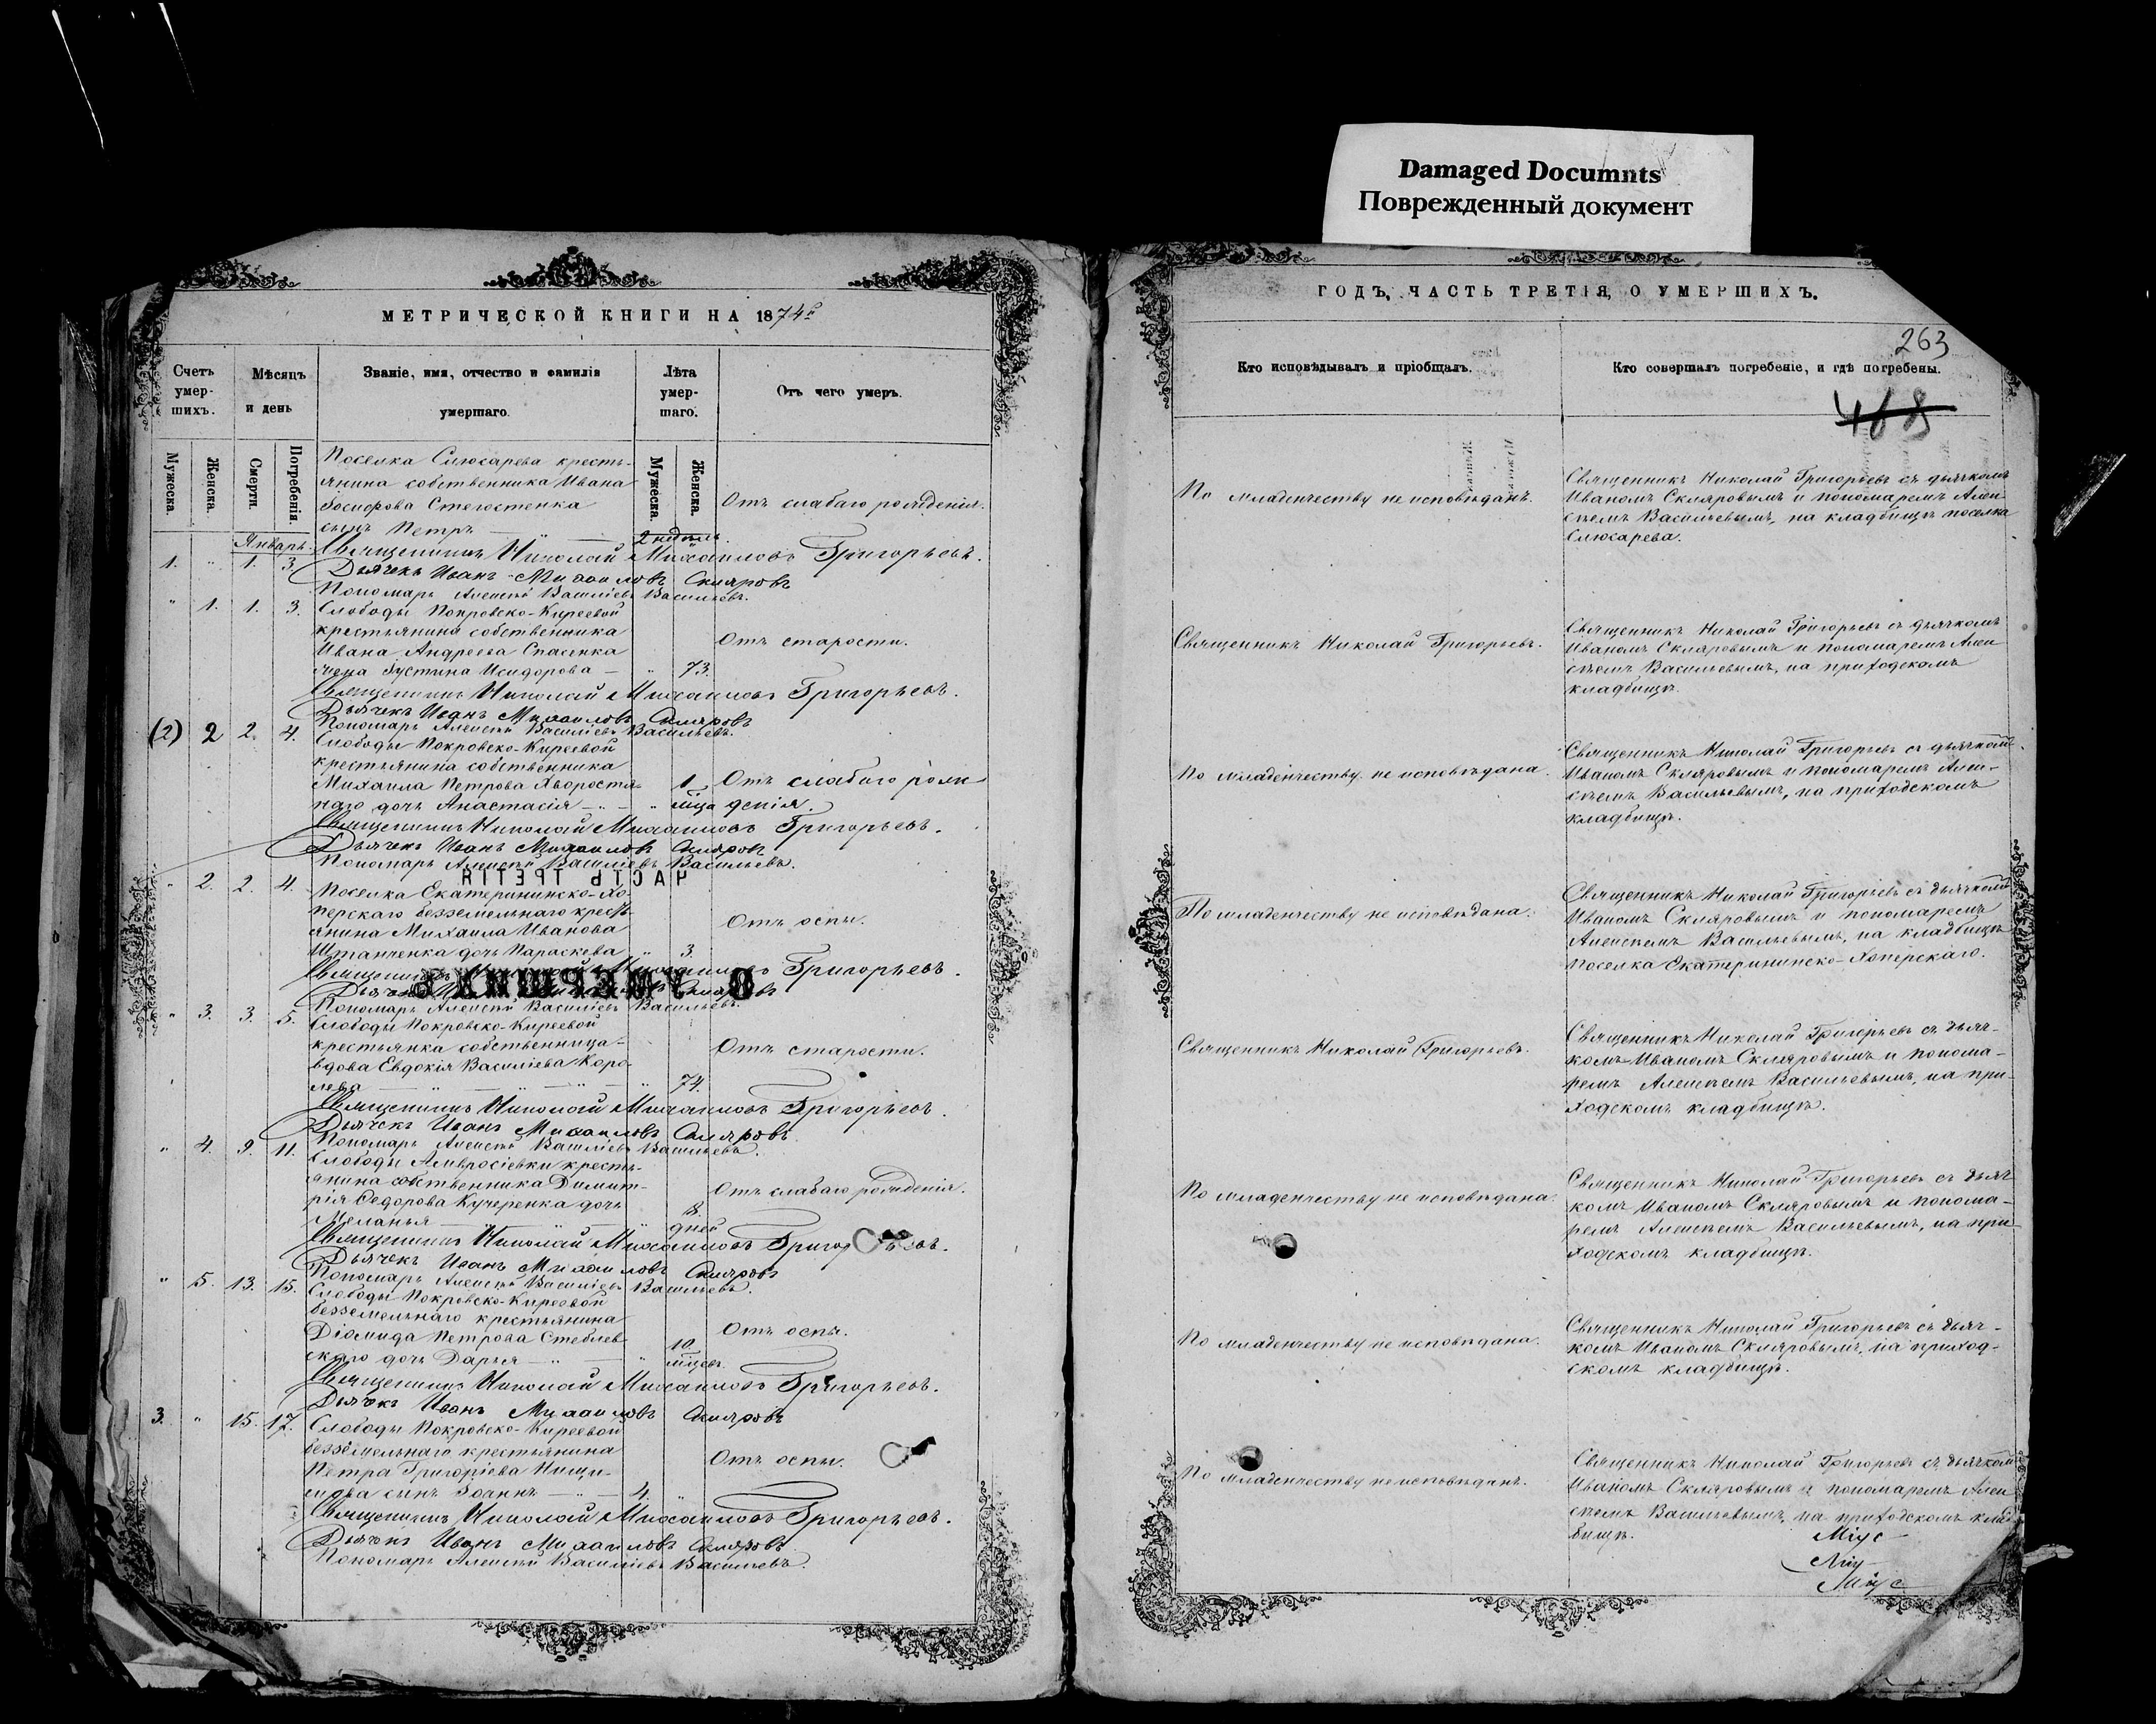 Damaged Documnts
Поврежденный документ
МЕТРИЧЕСКОЙ КНИГИ НА 1874й
Счетъ умер-шихъ.
Мѣсяцъ и день
Званіе, имя, отчество и фамилія умершаго.
Лѣта умер-шаго.
Отъ чего умеръ.
Мужеска.
Женска.
Смерти.
Погребенія.
Мужеска.
Женска.
Январь.
Поселка Слюсарева кресть-
янина собственника Ивана
Іосифова Стегостенка
сынъ Петръ
2 недѣль.
Отъ слабаго рожденія.
1. " 1. 3.
Священникъ Николай Михаиловъ Григорьевъ.
Дьячекъ Иванъ Михаиловъ Скляровъ
Пономарь Алексѣй Василіевъ Васильевъ.
" 1. 1. 3.
Слободы Покровско-Киреевой
крестьянина собственника
Ивана Андреева Спасенка
жена Іустина Исидорова — " 73.
Отъ старости.
Священникъ Николай Михаиловъ Григорьевъ.
Дьячекъ Иванъ Михаиловъ Скляровъ
Пономарь Алексѣй Василіевъ Васильевъ.
(2) 2 2. 4.
Слободы Покровско-Киреевой
крестьянина собственника
Михаила Петрова Хворостя-
наго дочь Анастасія — " — " 1 мца
Отъ слабаго рож
денія.
Священникъ Николай Михаиловъ Григорьевъ.
Дьячекъ Иванъ Михаиловъ Скляровъ
Пономарь Алексѣй Василіевъ Васильевъ.
ЧАСТЬ ТРЕТІЯ
" 2. 2. 4.
Поселка Екатерининско-Хо-
перскаго безземельнаго кресть-
янина Михаила Иванова
Штанченка дочь Параскева " 3.
Отъ оспы.
Священникъ Николай Михаиловъ Григорьевъ.
О УМЕРШИХЪ
Дьячекъ Иванъ Михаиловъ Скляровъ
Пономарь Алексѣй Василіевъ Васильевъ.
" 3. 3. 5.
Слободы Покровско-Киреевой
крестьянка собственница-
вдова Евдокія Василіева Коро-
лева — " — " — " 74.
Отъ старости.
Священникъ Николай Михаиловъ Григорьевъ.
Дьячекъ Иванъ Михаиловъ Скляровъ.
Пономарь Алексѣй Василіевъ Васильевъ.
" 4. 9. 11.
Слободы Амвросіевки кресть-
янина собственника Димит-
рія Ѳедорова Кучеренка дочь
Меланья — " — " 8. дней
Отъ слабаго рожденія.
Священникъ Николай Михаиловъ Григорьевъ.
Дьячекъ Иванъ Михаиловъ Скляровъ
Пономарь Алексѣй Василіевъ Васильевъ.
" 5. 13. 15.
Слободы Покровско-Киреевой
безземельнаго крестьянина
Діомида Петрова Стеблев-
скаго дочь Дарья — " — " 10 мцевъ.
Отъ оспы.
Священникъ Николай Михаиловъ Григорьевъ.
Дьячекъ Иванъ Михаиловъ Скляровъ
3. " 15. 17.
Слободы Покровско-Киреевой
безземельнаго крестьянина
Петра Григоріева
сынъ Іоаннъ — " — 4. "
Отъ оспы.
Священникъ Николай Михаиловъ Григорьевъ.
Дьячекъ Иванъ Михаиловъ Скляровъ
Пономарь Алексѣй Василіевъ Васильевъ.
ГОДЪ, ЧАСТЬ ТРЕТІЯ, О УМЕРШИХЪ.
263
Кто исповѣдывалъ и пріобщалъ.
Кто совершалъ погребеніе, и гдѣ погребены.
468
По младенчеству не исповѣданъ.
Священникъ Николай Григорьевъ съ дьячкомъ
Иваномъ Скляровымъ и пономаремъ Алек
сѣемъ Васильевымъ, на кладбищѣ поселка
Слюсарева.
Священникъ Николай Григорьевъ.
Священникъ Николай Григорьевъ съ дьячкомъ
Иваномъ Скляровымъ и пономаремъ Алек
сѣемъ Васильевымъ, на приходскомъ
кладбищѣ.
По младенчеству не исповѣдана.
Священникъ Николай Григорьевъ съ дьячкомъ
Иваномъ Скляровымъ и пономаремъ Алек-
сѣемъ Васильевымъ, на приходскомъ
кладбищѣ.
По младенчеству не исповѣдана.
Священникъ Николай Григорьевъ съ дьячкомъ
Иваномъ Скляровымъ и пономаремъ
Алексѣемъ Васильевымъ, на кладбищѣ
поселка Екатерининско-Хоперскаго.
Священникъ Николай Григорьевъ.
Священникъ Николай Григорьевъ съ дьяч-
комъ Иваномъ Скляровымъ и понома-
ремъ Алексѣемъ Васильевымъ, на при-
ходскомъ кладбищѣ.
По младенчеству не исповѣдана.
Священникъ Николай Григорьевъ съ дьяч
комъ Иваномъ Скляровымъ и понома-
ремъ Алексѣемъ Васильевымъ, на при
ходскомъ кладбищѣ.
По младенчеству не исповѣдана.
Священникъ Николай Григорьевъ съ дьяч-
комъ Иваномъ Скляровымъ, на приход-
скомъ кладбищѣ.
По младенчеству не исповѣданъ.
Священникъ Николай Григорьевъ съ дьячкомъ
Иваномъ Скляровымъ и пономаремъ Алек
сѣемъ Васильевымъ, на приходскомъ клад
бищѣ.
Міус
Міу
Міус